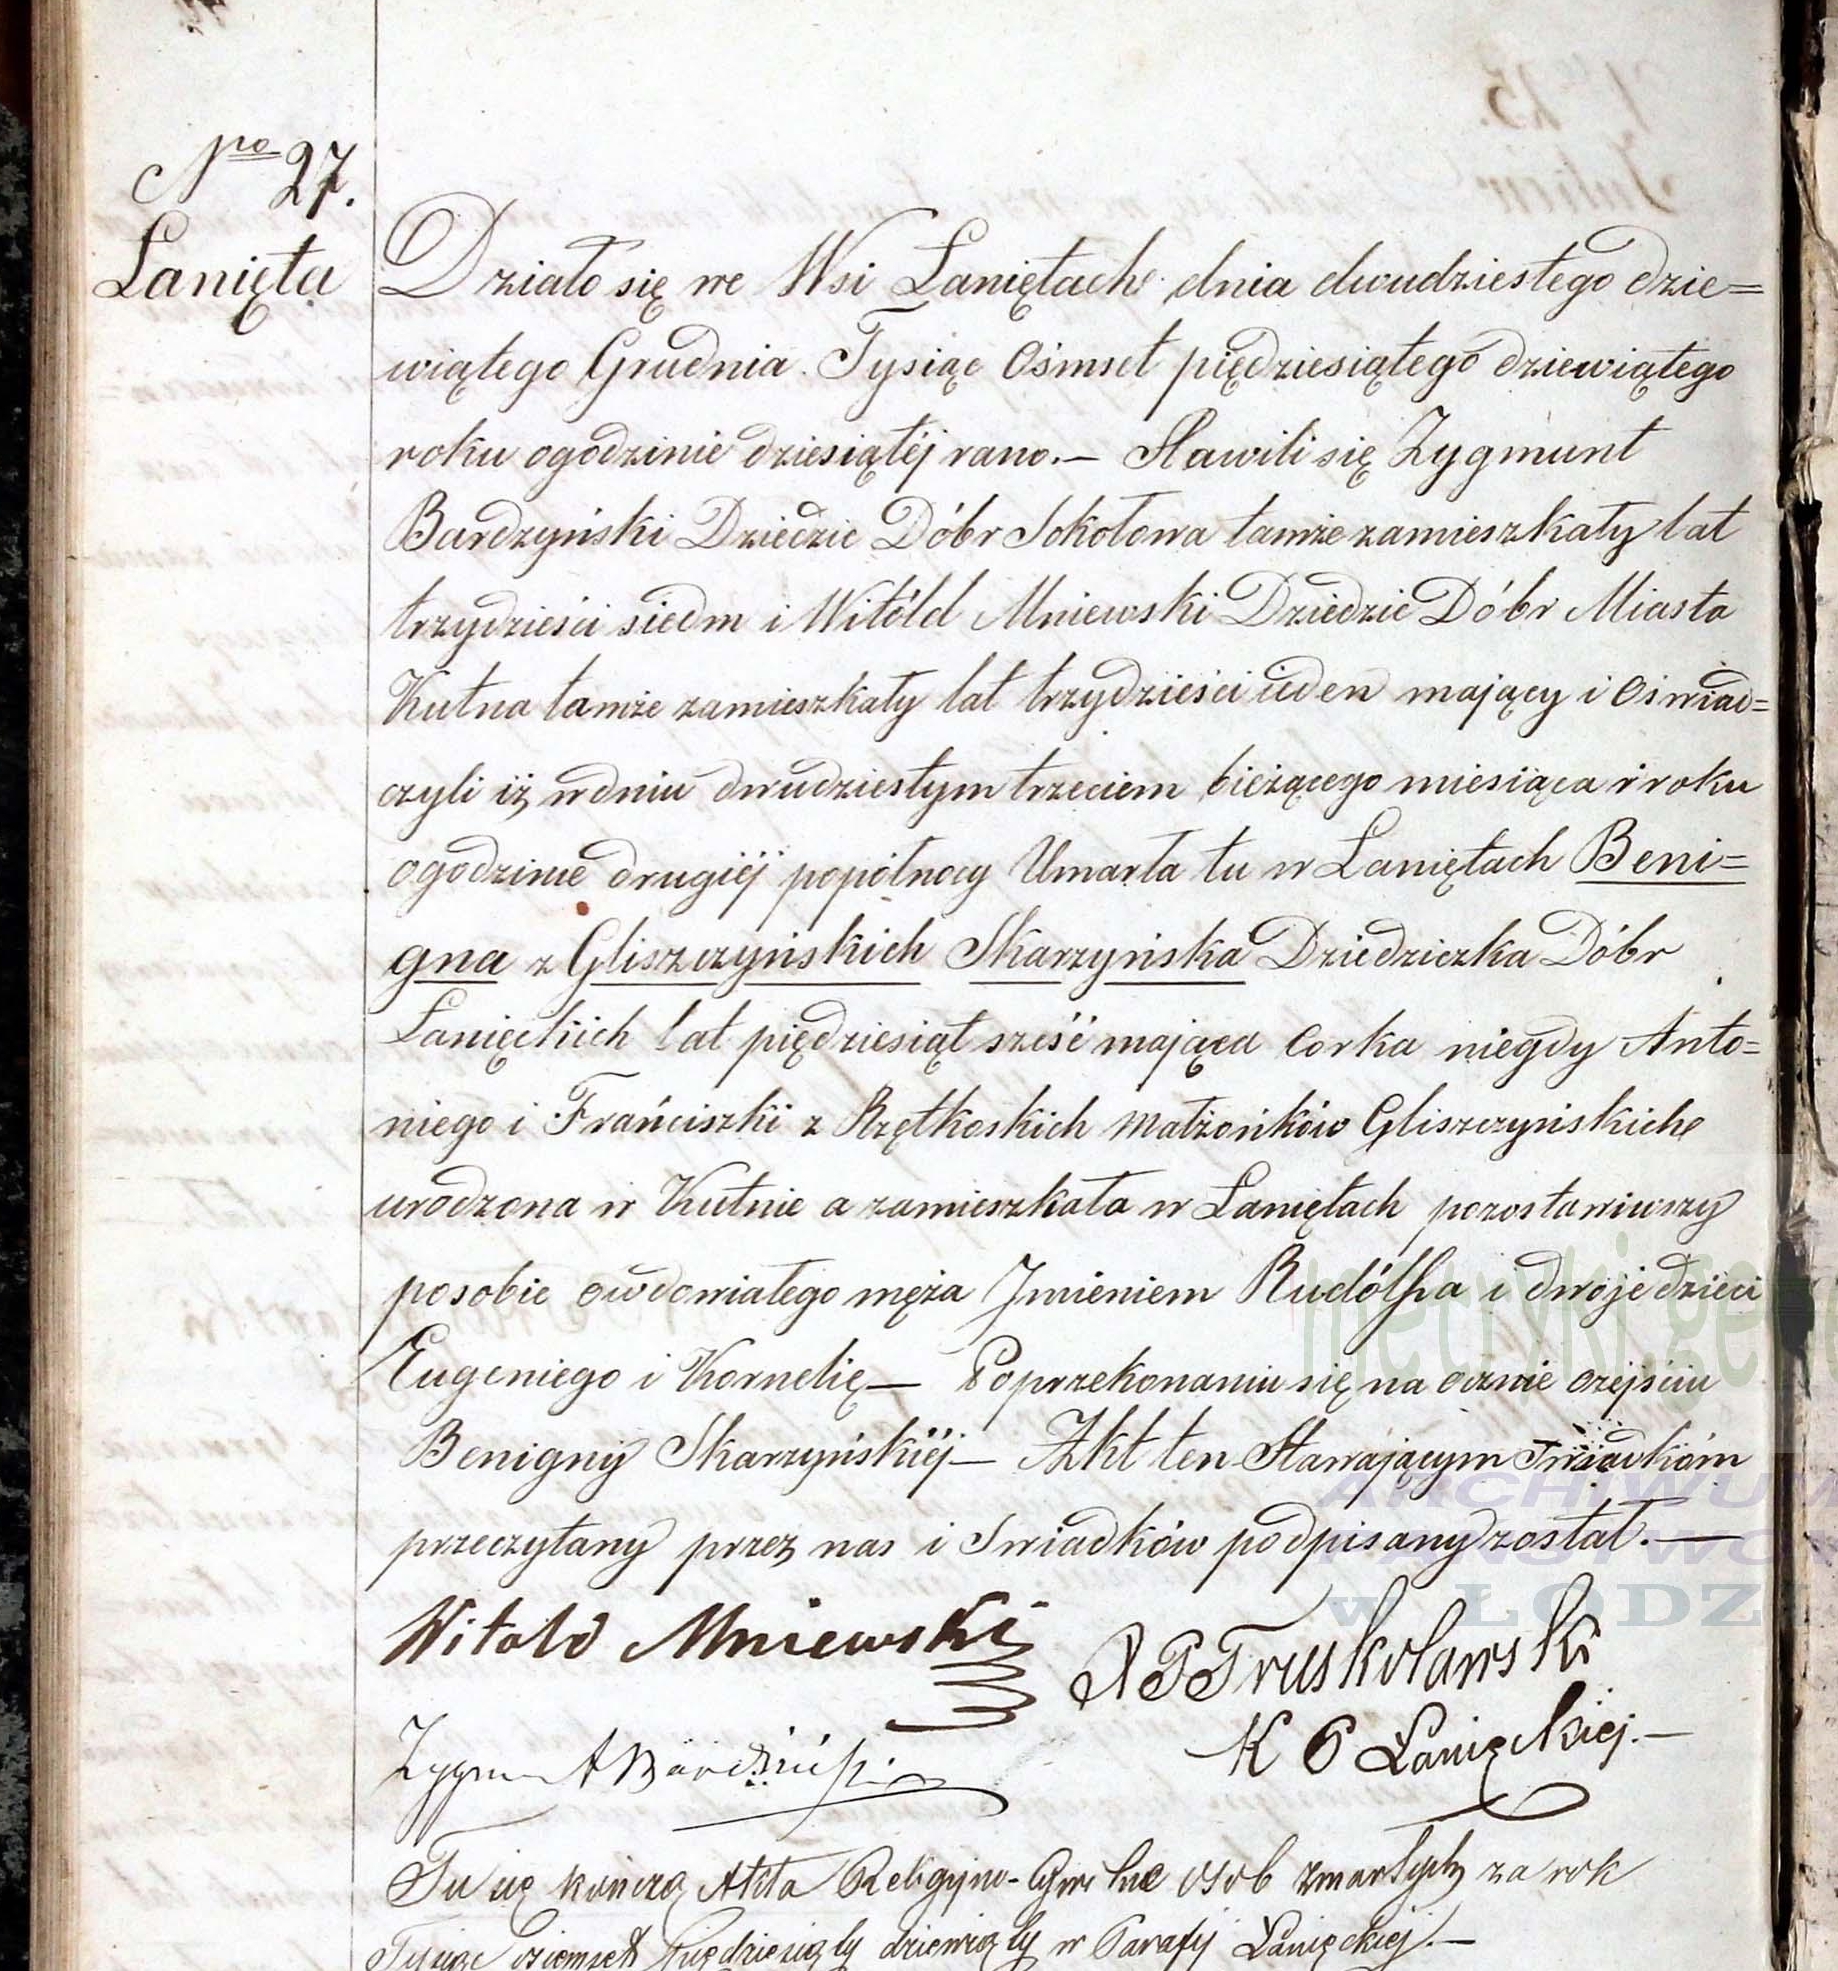 Nro 27.
Łanięta
Działo się we Wsi Łaniętach dnia dwudziestego dzie=
wiątego Grudnia Tysiąc Ośmset pięćdziesiątego dziewiątego
roku ogodzinie dziesiątéj rano.— Stawili się Zygmunt
Bardzyński Dziedzic Dóbr Sokołowa tamże zamieszkały lat
trzydzieści siedm i Witóld Mniewski Dziedzic Dóbr Miasta
Kutna tamże zamieszkały lat trzydzieści ieden mający i Oświad=
czyli iż wdniu dwudziestym trzeciem bieżącego miesiąca i roku
ogodzinie drugiéj popółnocy Umarła tu w Łaniętach Beni=
gna z Gliszczyńskich Skarzyńska Dziedziczka Dóbr
Łanięckich lat pięćdziesiąt sześć mająca Corka niegdy Anto=
niego i Franciszki z Rzętkoskich Małżonków Gliszczyńskich
urodzona w Kutnie a zamieszkała w Łaniętach pozostawiwszy
posobie owdowiałego męża Jmieniem Rudólfa i dwoje dzieci
Eugeniego i Kornelię— Poprzekonaniu się na ocznie ozejściu
Benigny Skarzyńskiéj— Akt ten Stawającym Swiadkom
przeczytany przez nas i Swiadków podpisany został.—
Witold Mniewski
X P Truskolawski
K P Łanięckiej.—
Zygmunt Bardziński
Tu się kończą Akta Religijno-Cywilne osób zmarłych za rok
Tysiąc osiemset piędziesiąty dziewiąty w Parafij Łanięckiej.—
w ŁODZI